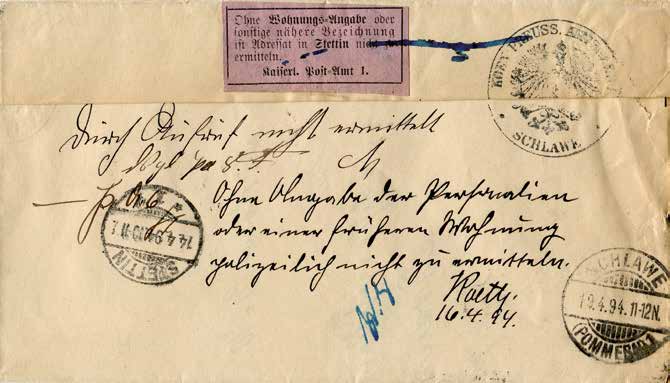 Ohne Wohnungs-Angabe oder
sonstige nähere Bezeichnung
ist Adressat in Stettin nicht zu
ermitteln.
Kaiserl. Post-Amt 1.
KÖN. PREUSS.
SCHLAWE
Durch Ausruf nicht ermittelt
Ohne Angabe der Personalien
oder einer früheren Wohnung
polizeilich nicht zu ermitteln.
16.4.94.
STETTIN
14.4.94.10-11
SCHLAWE
19.4.94.11-12N.
(POMMERN) 1